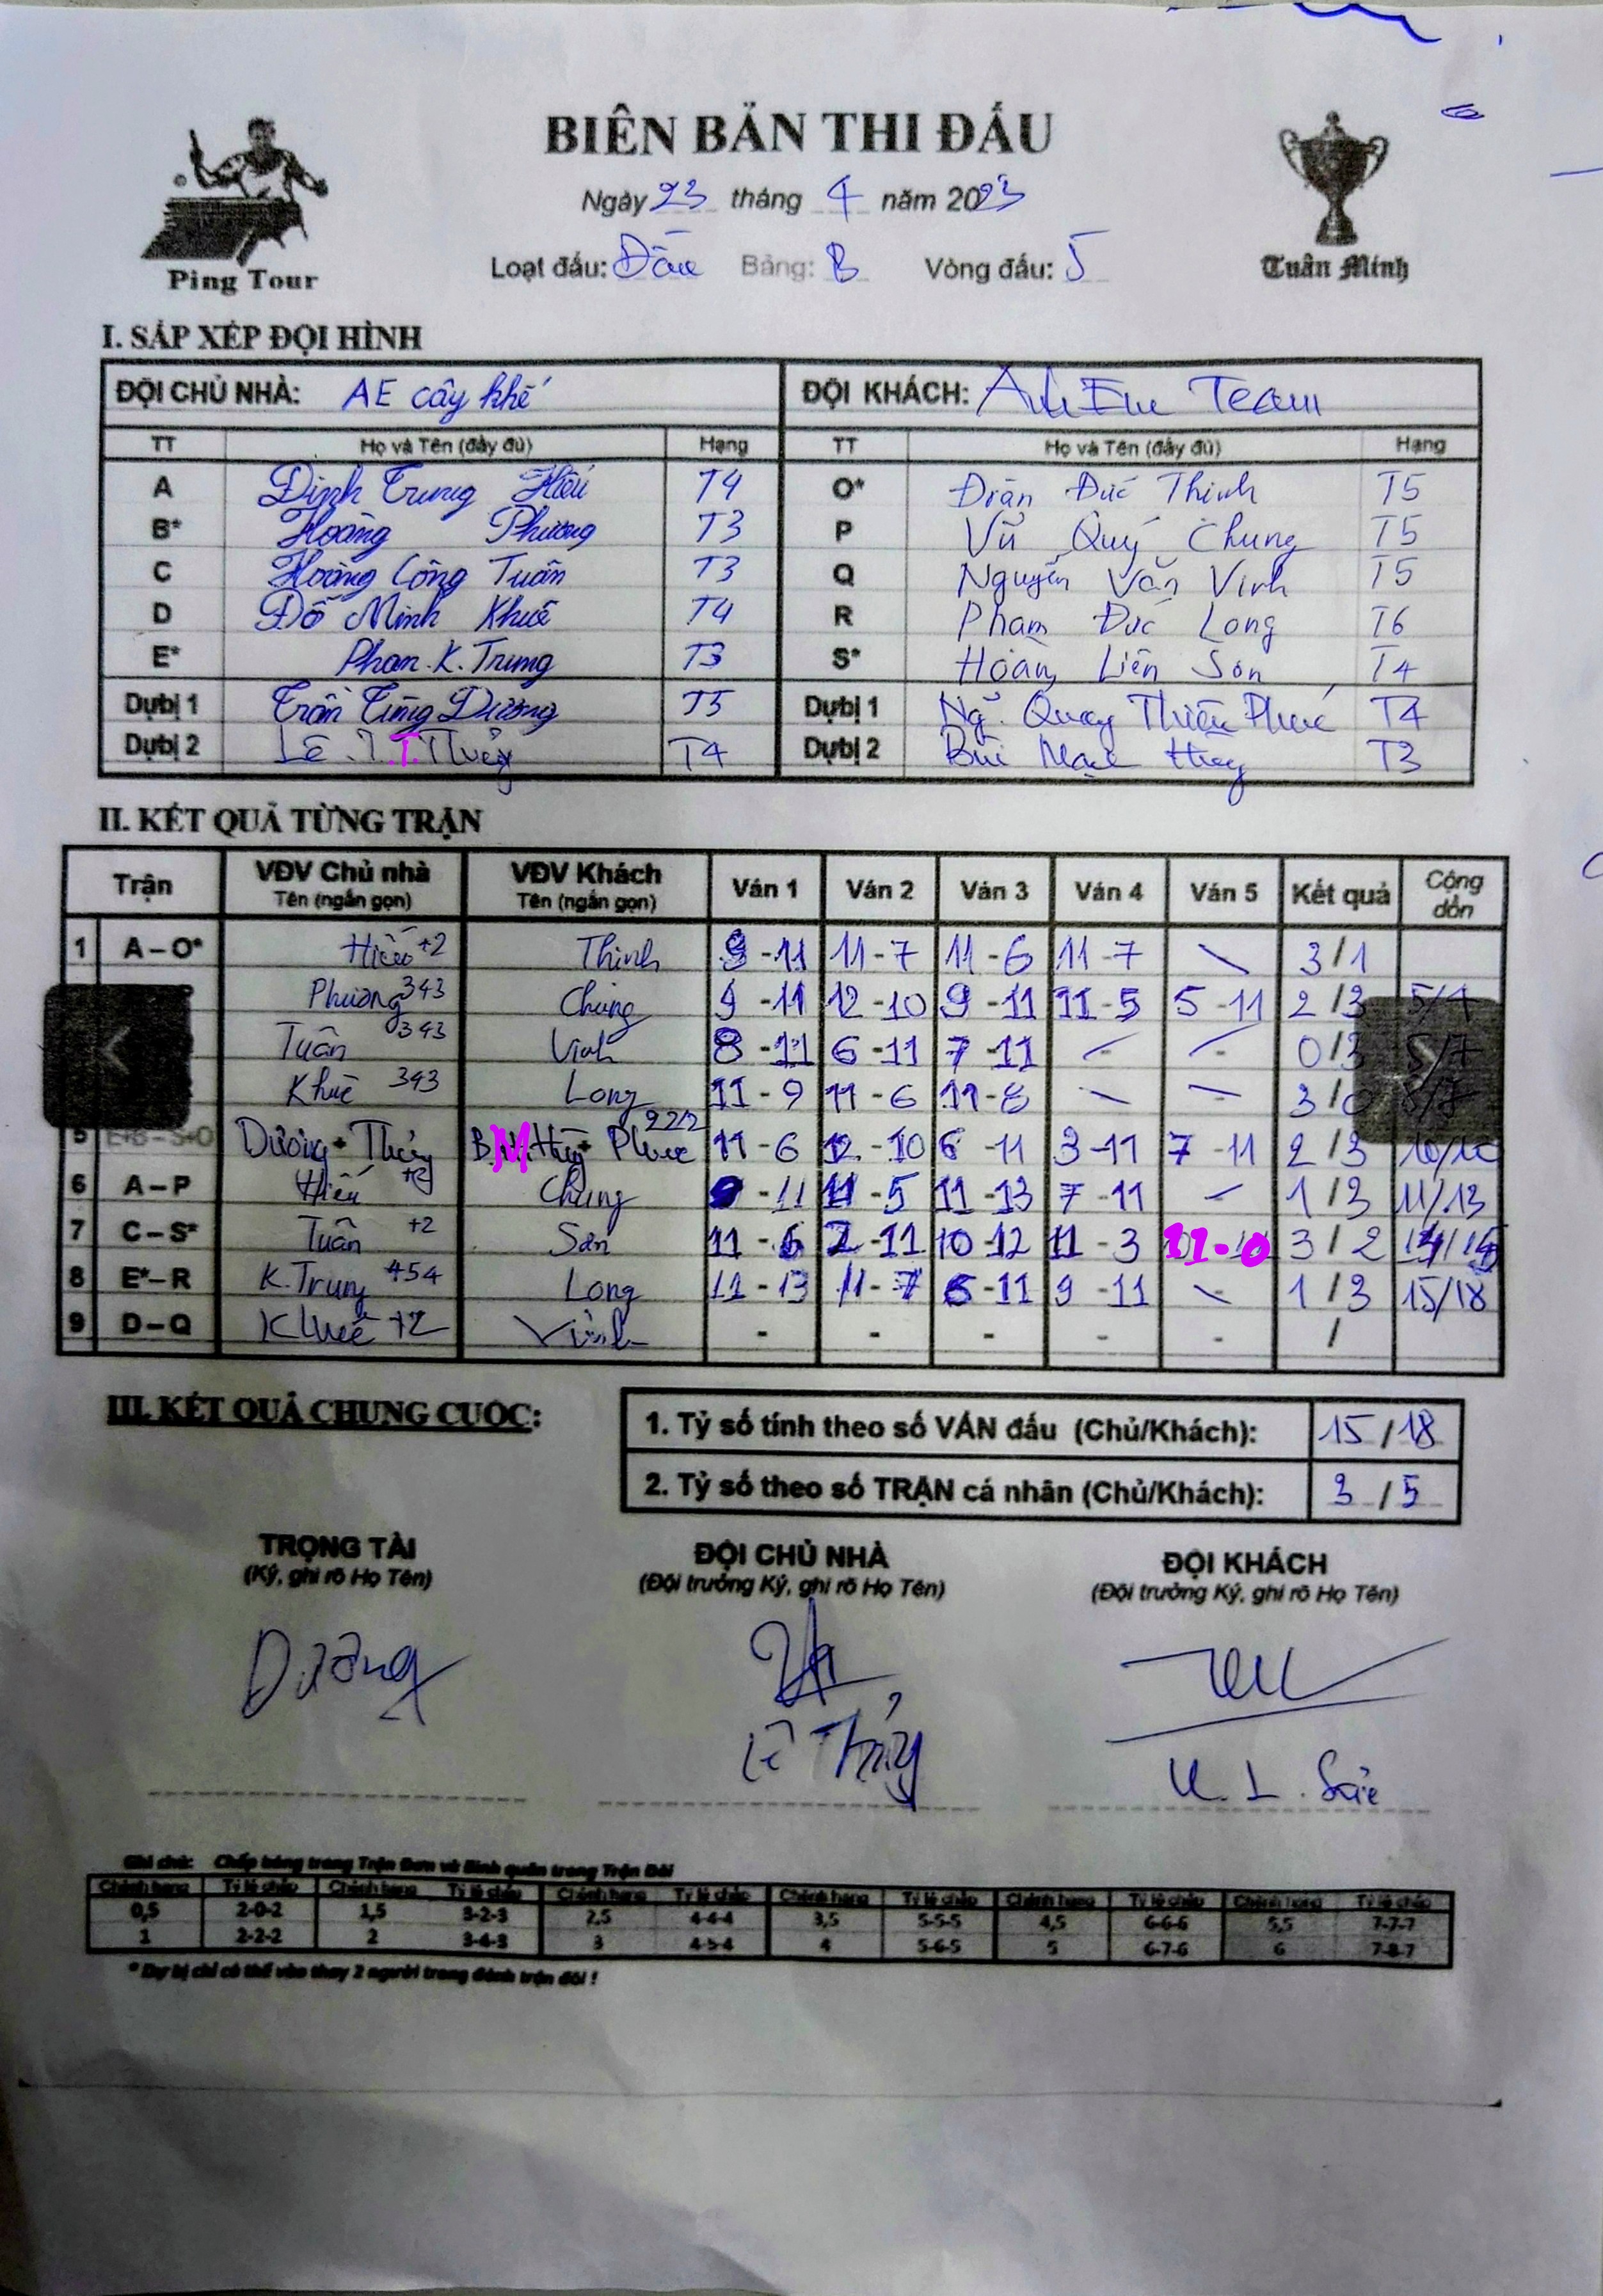 BIÊN BẢN THI ĐẤU
Ngày 23 tháng 4 năm 2023
Ping Tour
Loạt đấu: Đầu Bảng: B Vòng đấu: 5
Tuân Minh
I. SẮP XẾP ĐỘI HÌNH
ĐỘI CHỦ NHÀ: AE cây khế ĐỘI KHÁCH: Anh Em Team
TT Họ và Tên (đầy đủ) Hạng TT Họ và Tên (đầy đủ) Hạng
A Đinh Trung Hiếu T4 O* Đức Thinh T5
B* Hoàng Phương T3 P Vũ Quý Chung T5
C Hoàng Công Tuấn T3 Q Nguyễn Văn Vinh T5
D Đỗ Minh Khuê T4 R Phạm Đức Long T6
E* Phan.K.Trung T3 S* Hoàng Liên Sơn T4
Dự bị 1 Trần Tùng Dương T5 Dự bị 1 Ng. Quang Thiên Phúc T4
Dự bị 2 Lê .T.Thủy T4 Dự bị 2 Bùi Mạnh T3
II. KẾT QUẢ TỪNG TRẬN
Trận VĐV Chủ nhà Tên (ngắn gọn) VĐV Khách Tên (ngắn gọn) Ván 1 Ván 2 Ván 3 Ván 4 Ván 5 Kết quả Cộng dồn
1 A – O* Hiếu +2 Thinh 9 - 11 11 - 7 11 - 6 11 - 7 3 / 1
Phương 343 Chung 9 - 11 12 - 10 9 - 11 11 - 5 5 - 11 2 / 3 5/4
Tuấn 343 Vinh 8 - 11 6 - 11 7 - 11 - - 0 / 3 5/7
Khuê 343 Long 11 - 9 11 - 6 11 - 8 3 / 0 8/7
5 E+B – S+O Dương + Thủy B.M.Hùng + Phúc 222 11 - 6 12 - 10 6 - 11 3 - 11 7 - 11 2 / 3 10/10
6 A – P Hiếu +2 Chung 9 - 11 11 - 5 11 - 13 7 - 11 - 1 / 3 11/13
7 C – S* Tuấn +2 Sơn 11 - 6 2 - 11 10 - 12 11 - 3 11 - 0 3 / 2 14/15
8 E* – R K.Trung 454 Long 11 - 13 11 - 7 6 - 11 9 - 11 - 1 / 3 15/18
9 D – Q Khuê +2 Vinh - - - - - /
III. KẾT QUẢ CHUNG CUỘC:
1. Tỷ số tính theo số VÁN đấu (Chủ/Khách): 15 / 18
2. Tỷ số theo số TRẬN cá nhân (Chủ/Khách): 3 / 5
TRỌNG TÀI ĐỘI CHỦ NHÀ ĐỘI KHÁCH
(Ký, ghi rõ Họ Tên) (Đội trưởng Ký, ghi rõ Họ Tên) (Đội trưởng Ký, ghi rõ Họ Tên)
Dương
Lê Thủy
Ghi chú: Chấp bóng trong Trận Đơn và Bình quân trong Trận Đôi
Chênh hạng Tỷ lệ chấp Chênh hạng Tỷ lệ chấp Chênh hạng Tỷ lệ chấp Chênh hạng Tỷ lệ chấp Chênh hạng Tỷ lệ chấp Chênh hạng Tỷ lệ chấp
0,5 2-0-2 1,5 3-2-3 2,5 4-4-4 3,5 5-5-5 4,5 6-6-6 5,5 7-7-7
1 2-2-2 2 3-4-3 3 4-5-4 4 5-6-5 5 6-7-6 6 7-8-7
* Dự bị chỉ có thể vào thay 2 người trong đánh trận đôi !